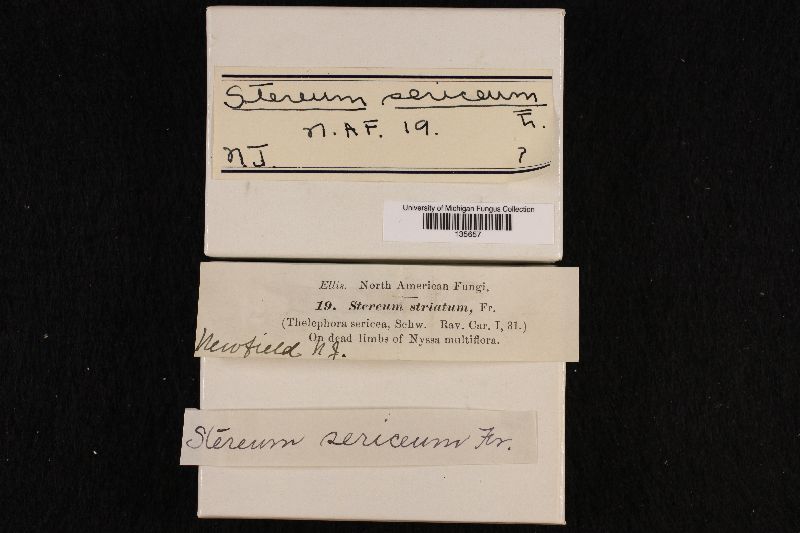 Stereum sericeum
N.A.F. 19.
NJ. ?
University of Michigan Fungus Collection
135657
Ellis. North American Fungi.
19. Stereum striatum, Fr.
(Thelephora sericea, Schw. Rav. Car. I, 31.)
On dead limbs of Nyssa multiflora.
Newfield N.J.
Stereum sericeum Fr.